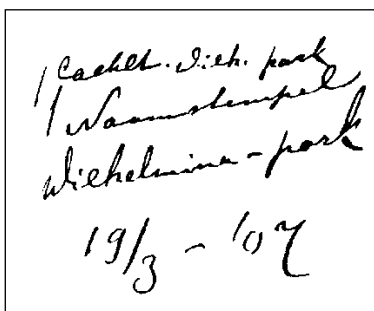 1 Cachet. Wilh. park
1 Naamstempel
Wilhelmina-park
19/3 - '07